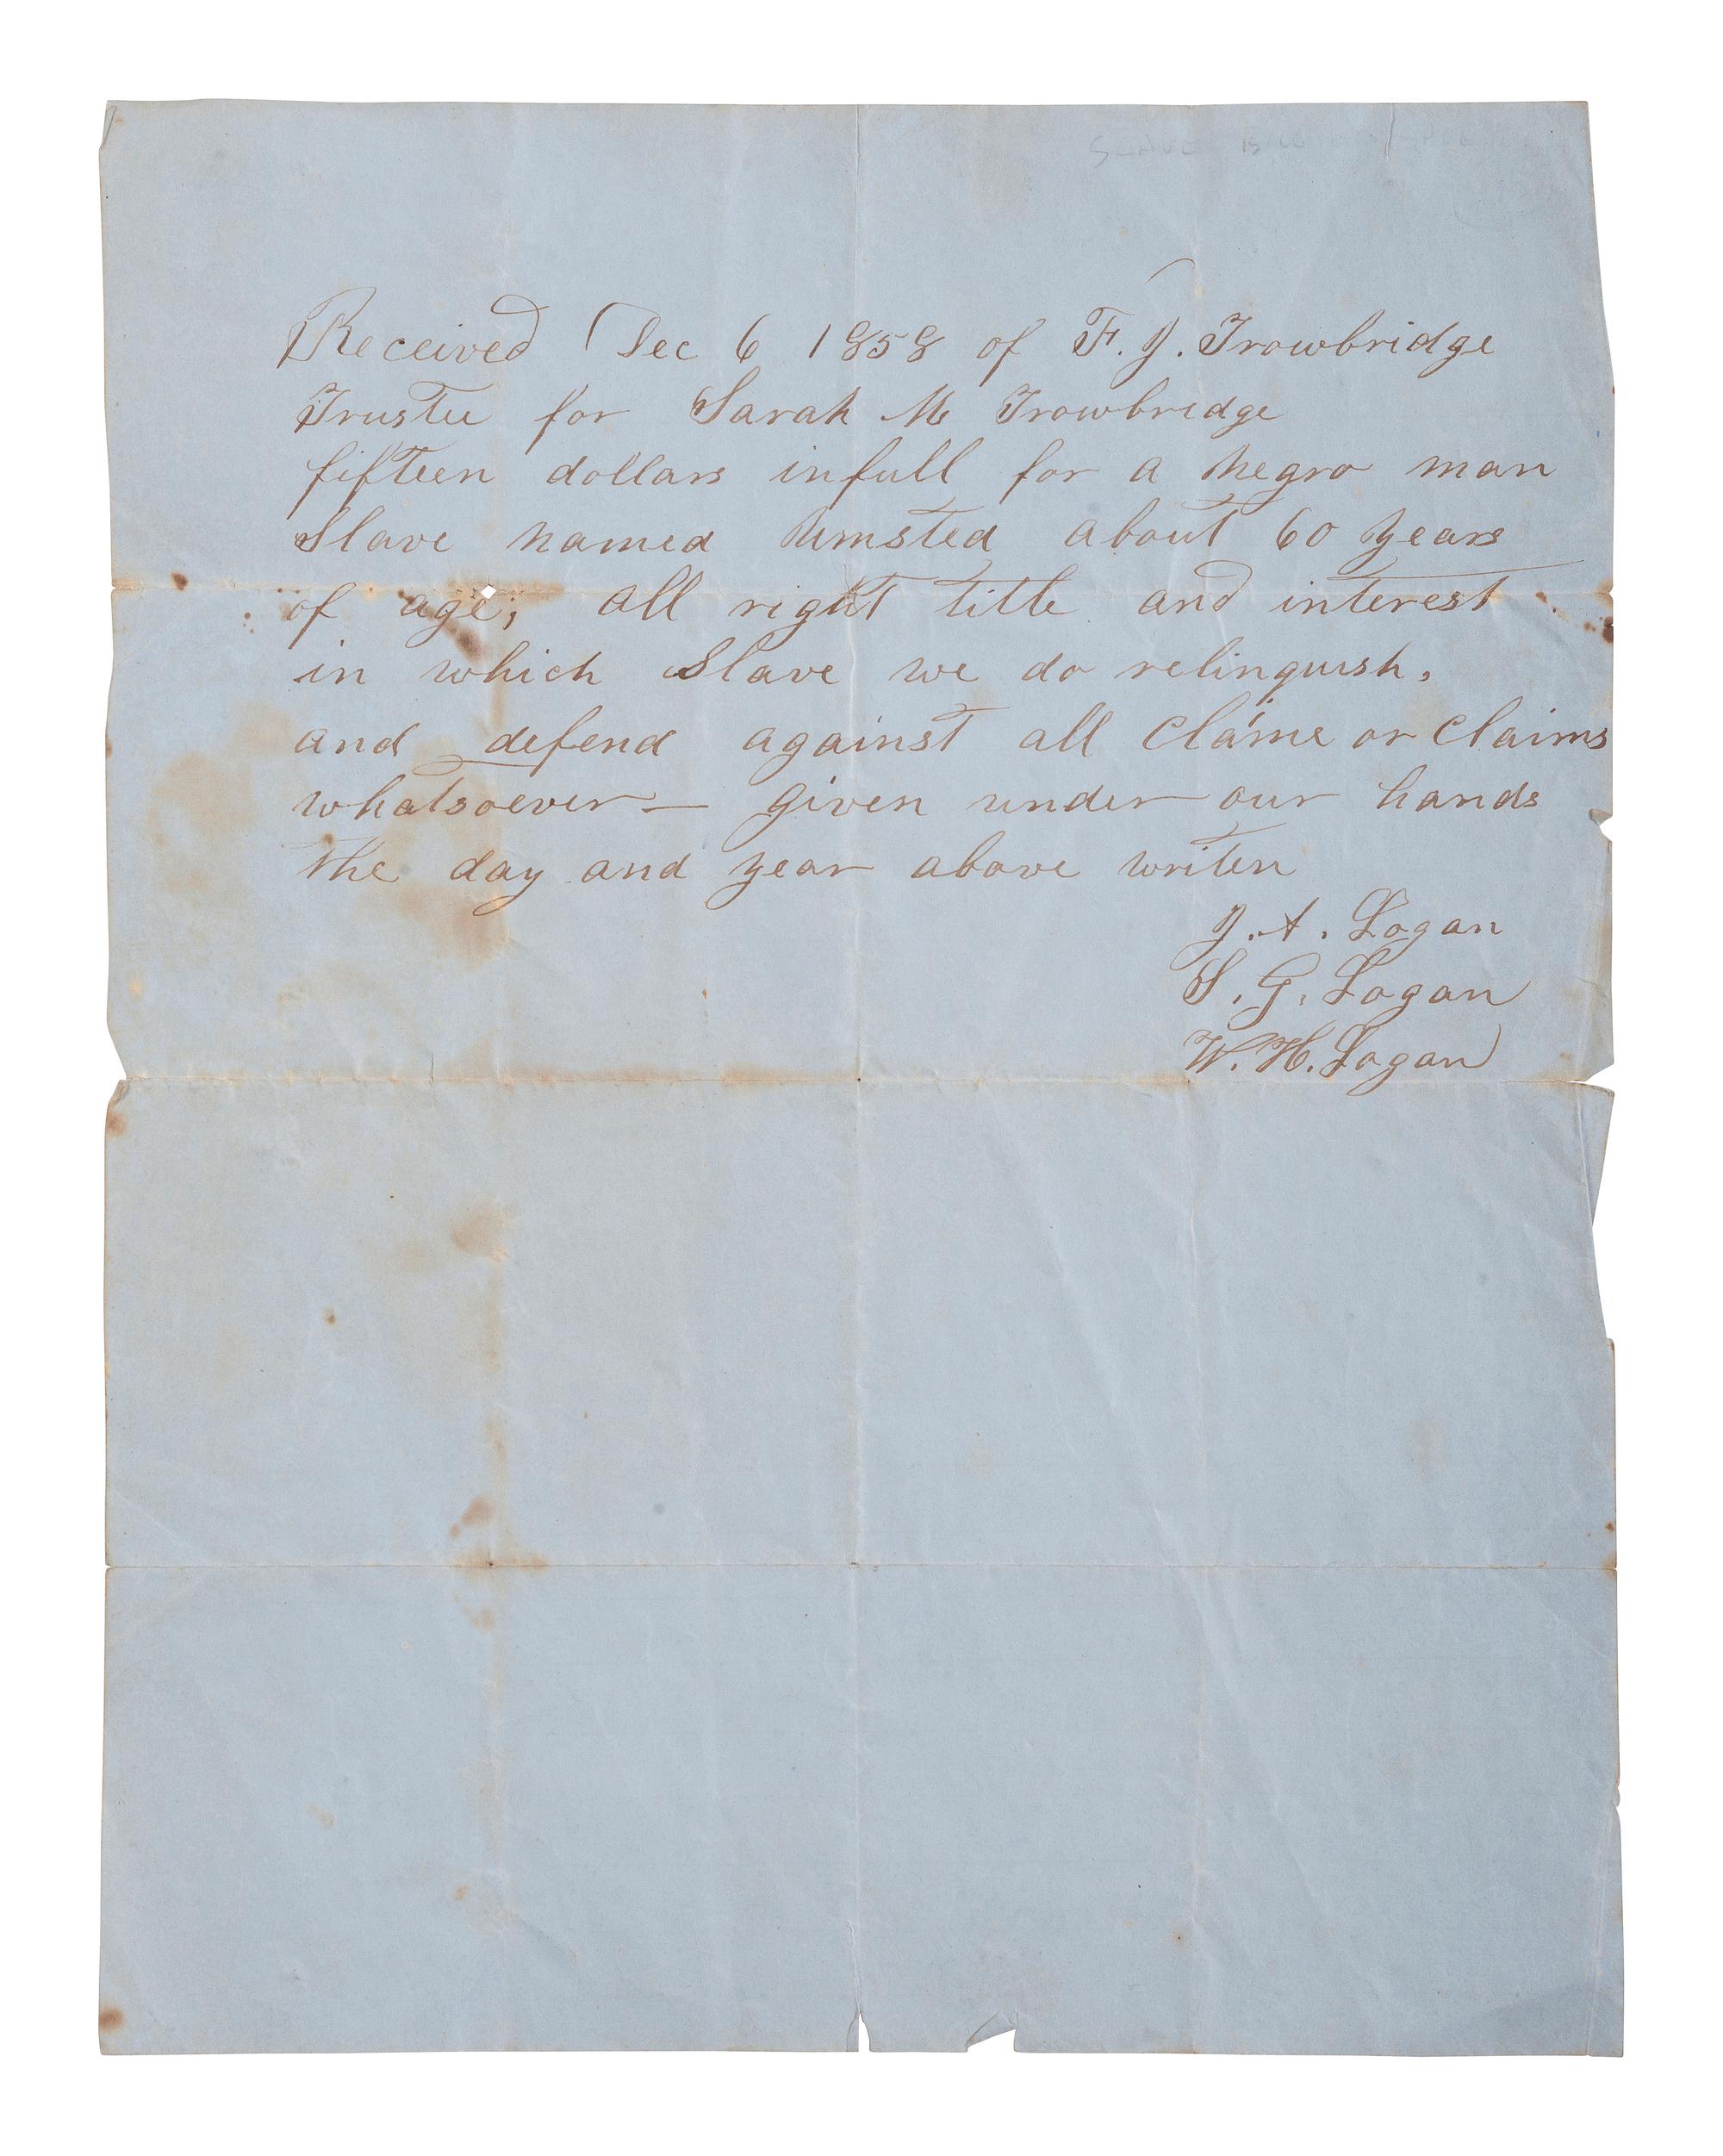 SLAVE
Received Dec 6 1858 of F. J. Trowbridge
Trustee for Sarah M Trowbridge
fifteen dollars infull for a negro man
Slave named Umsted about 60 years
of age; all right title and interest
in which Slave we do relinquish,
and defend against all clame or claims
whatsoever — given under our hands
the day and year above writen
J. A. Logan
S. G. Logan
W. H. Logan